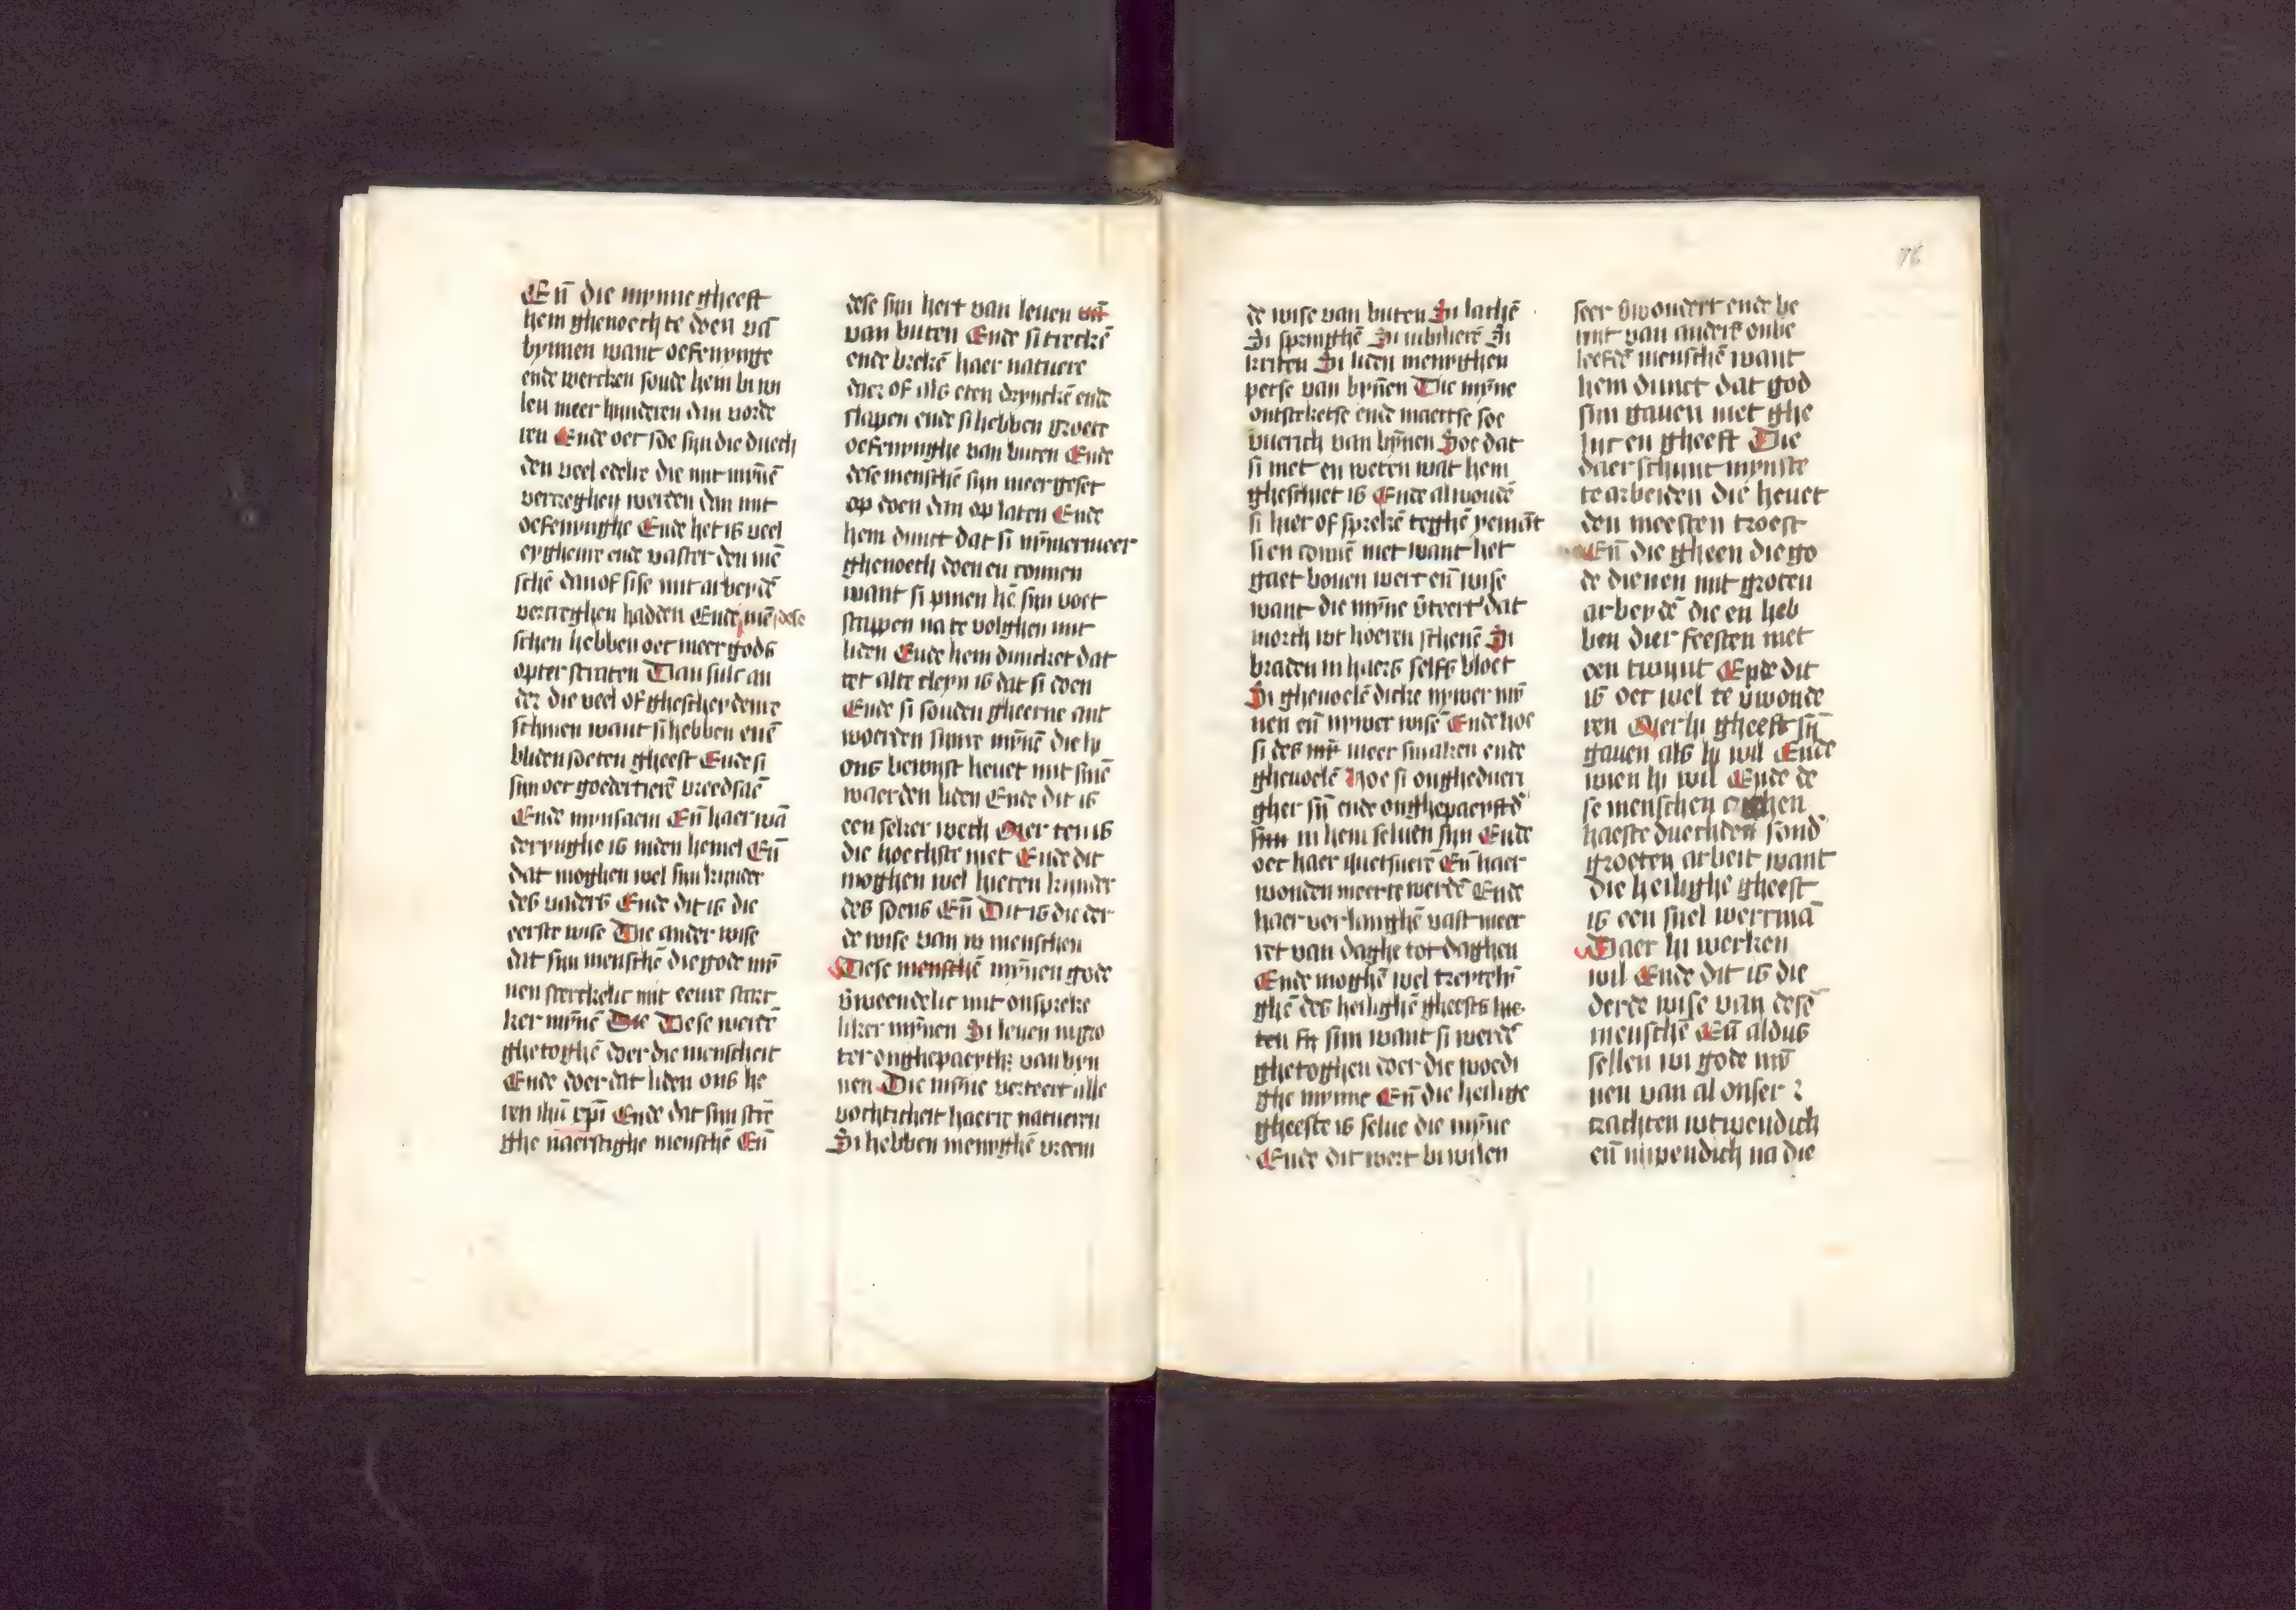 En̄ die mynne gheeft
hem ghenoech te doen vā
bynnen want oefenynge
ende wercken soude hem bi wi
len meer hynderen dan vorde
ren Ende oec soe syn die duech
den veel edelre die mit myn̄ē
vercreghen werden dan mit
oefenynghe Ende het is veel
eyghenre ende vaster den mē
schē dan of sise mit arbeydē
vercreghen hadden Ende dese mē
schen hebben oec meer gods
opter straten Dan sulc an
der die veel of ghescheydenre
schinen want si hebben enē
bliden soeten gheest Ende si
syn oec goedertierē breedsaē
Ende mynsaem En̄ haer wā
derynghe is inden hemel En̄
dat moghen wel syn kynder
des vaders Ende dit is die
eerste wise Die ander wise
dit syn menschē die gode myn̄
nen sterckelic mit eenre starc
ker myn̄ē Die Dese werdē
ghetoghē doer die menscheit
Ende doer dat liden ons he
ren ihū xp̄i Ende dat syn strē
ghe naerstighe menschē En̄
dese syn hert van leuen en̄
van buten Ende si treckē
ende brekē haer natuere
daer of als eten drynckē ende
slapen ende si hebben groete
oefenynghe van buten Ende
dese menschē syn meer geset
op doen dan op laten Ende
hem dunct dat si nȳmermeer
ghenoech doen en connen
want si pinen hē syn voet
stappen na te volghen mit
liden Ende hem duncket dat
tet alte cleyn is dat si doen
Ende si souden gheerne ant
woerden sijnre myn̄ē die hy
ons bewyst heuet mit sinē
waerden liden Ende dit is
een seker wech Mer ten is
die hoechste niet Ende dit
moghen wel hieten kynder
des soens En̄ Dit is die der
de wise van iii menschen
Dese menschē mȳnen gode
v̄weendelic mit onspreke
liker mȳnen Si leuen in gro
ter onghepaeyth: van byn
nen Die mȳne verteert alle
vochticheit haerre natueren
Si hebben menyghē vreem
de wise van buten Si lachē
Si springhē Si iubilierē Si
kriten Si liden menyghen
perse van byn̄en Die mȳne
ontstecketse ende maectse soe
vuerich van bȳnen Soe dat
si niet en weten wat hem
gheschiet is Ende al woudē
si hier of sprekē teghē yemāt
si en connē niet want het
gaet bouen werc en̄ wise
want die mȳne v̄teert dat
morch wt hoeren schenē Si
braden in haers selfs bloet
Si gheuoelē dicke nywer mȳ
nen en̄ nywer wisē Ende hoe
si des mȳ meer smaken ende
gheuoelē hoe si onghedueri
gher syn̄ ende onghepaeystd'
syn in hem seluen syn Ende
oec haer quetsuerē En̄ haer
wonden meerre werdē Ende
haer verlanghē vast meer
ret van daghe tot daghen
Ende moghē wel
ghē des heilighē gheests hie
ten syn want si werdē
ghetoghen doer die woedi
ghe mynne En̄ die heilige
gheeste is selue die mȳne
Ende dit wert bi wilen
seer v̄wondert ende be
nit van anderē onbe
leefdē menschē want
hem dunct dat god
sijn gauen niet ghe
lyc en gheeft Die
daer schynt mynste
te arbeiden die heuet
den meesten troest
En̄ die gheen die go
de dienen mit groten
arbeydē die en heb
ben dier feesten niet
een twynt Ende dit
is oec wel te v̄wonde
ren Mer hy gheeft syn̄
gauen als hy wil Ende
wien hy wil Ende de
se menschen
haeste duechden sond'
groeten arbeit want
die heilighe gheest
is een snel wercmā
Daer hy werken
wil Ende dit is die
derde wise van desē
menschē En̄ aldus
sellen wi gode mȳ
nen van al onser
crachten wtwendich
en̄ inwendich na die